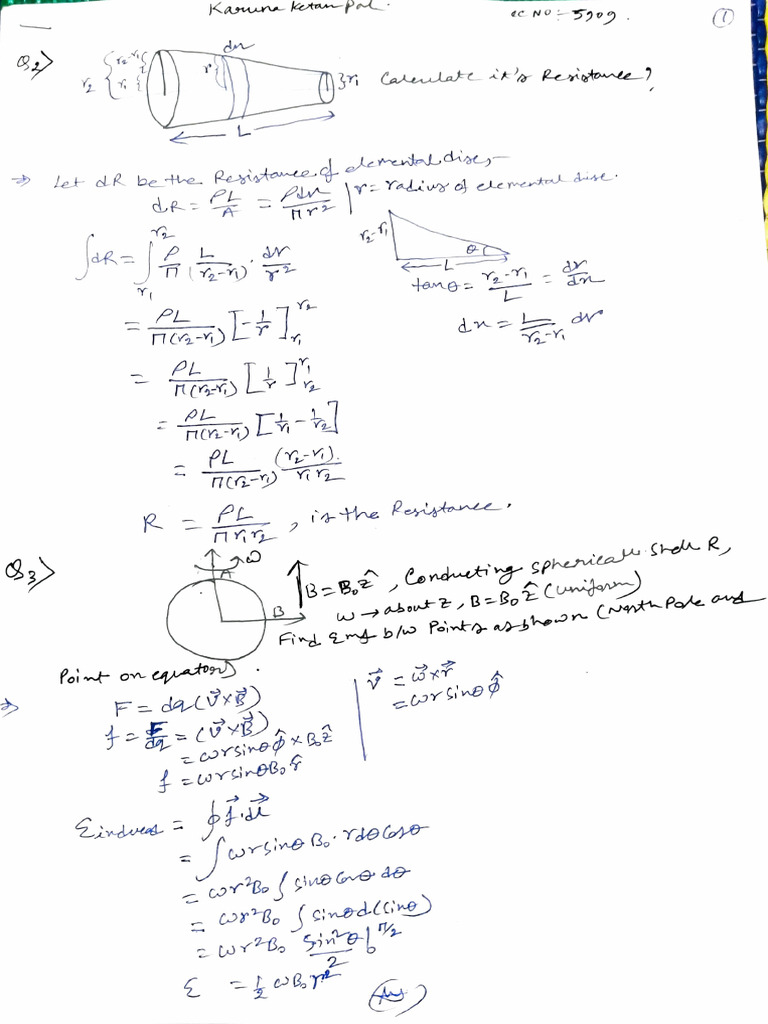 Karuna Ketan Pal. CC NO :- 5909. ①
Q2> r2 { r2-r1 { r1 { r dx } r1 Calculate it's Resistance?
L
⇒ Let dR be the Resistance of elemental disc,-
dR = ρL/A = ρdx/πr² | r = radius of elemental disc.
∫dR = ∫_{r1}^{r2} ρ/π L/(r2-r1) . dr/r²
r2-r1 θ L
tanθ = (r2-r1)/L = dr/dx
= ρL/π(r2-r1) [-1/r]_{r1}^{r2}
dx = L/(r2-r1) dr
= ρL/π(r2-r1) [1/r]_{r2}^{r1}
= ρL/π(r2-r1) [1/r1 - 1/r2]
= ρL/π(r2-r1) (r2-r1)./r1r2
R = ρL/πr1r2 , is the Resistance.
Q3> ω A B B = B₀ẑ , Conducting spherical shell R,
ω → about z, B = B₀ẑ (uniform)
Find Emf b/w Points as shown (North Pole and
Point on equator) .
⇒ F = dq(v⃗×B⃗) | v⃗ = ω⃗×r⃗
f = F/dq = (v⃗×B⃗) = ωr sinθ φ̂
= ωr sinθ φ̂ × B₀ẑ
f = ωr sinθ B₀ r̂
Ɛinduced = ∮ f⃗.dl⃗
= ∫ ωr sinθ B₀ . r dθ cosθ
= ωr²B₀ ∫ sinθ cosθ dθ
= ωr²B₀ ∫ sinθ d(sinθ)
= ωr²B₀ sin²θ/2 |₀^{π/2}
Ɛ = 1/2 ωB₀r²